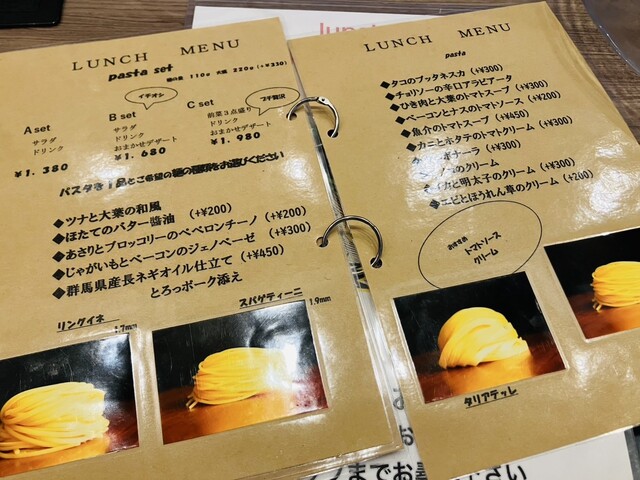 LUNCH MENU
pasta set
麺の量 110g 大盛 220g (+¥330)
イチオシ
プチ贅沢
A set
サラダ
ドリンク
¥1.380
B set
サラダ
ドリンク
おまかせデザート
¥1.680
C set
前菜3点盛り
ドリンク
おまかせデザート
¥1.980
パスタを1品とご希望の麺の種類をお選びください
◆ツナと大葉の和風
◆ほたてのバター醤油 (+¥200)
◆あさりとブロッコリーのペペロンチーノ (+¥200)
◆じゃがいもとベーコンのジェノベーゼ (+¥300)
◆群馬県産長ネギオイル仕立て (+¥450)
とろっポーク添え
リングイネ
1.7mm
スパゲティーニ
1.9mm
LUNCH MENU
pasta
◆タコのプッタネスカ (+¥300)
◆チョリソーの辛口アラビアータ
◆ひき肉と大葉のトマトスープ (+¥300)
◆ベーコンとナスのトマトソース (+¥200)
◆魚介のトマトスープ (+¥450)
◆カニとホタテのトマトクリーム (+¥300)
ナーラ (+¥300)
のクリーム
と明太子のクリーム (+¥300)
エビとほうれん草のクリーム (+200)
おすすめ
トマトソース
クリーム
タリアテッレ
までお
ださい